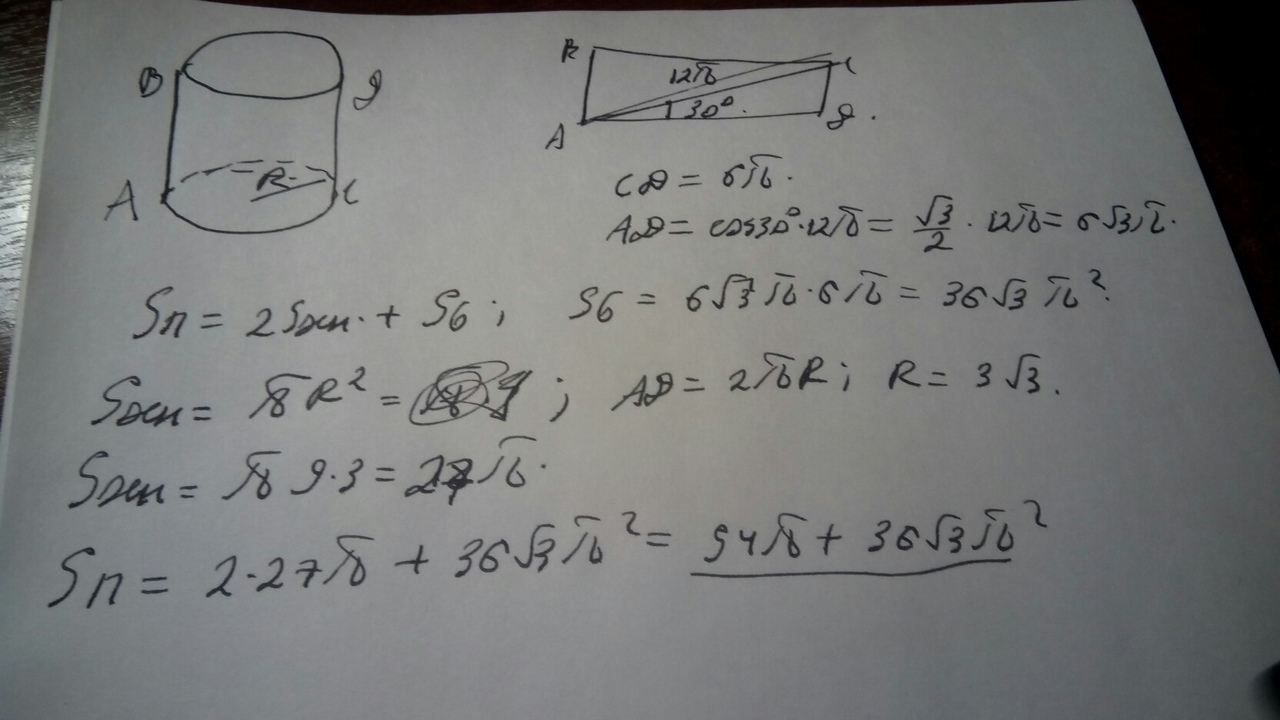 B D
A R C
B 12π C
A 30° D.
CD = 6π.
AD = cos30°·12π = √3/2 · 12π = 6√3π.
Sп = 2Sосн. + Sб; Sб = 6√3π·6π = 36√3π².
Sосн = πR² = ; AD = 2πR; R = 3√3.
Sосн = π9·3 = 27π.
Sп = 2·27π + 36√3π² = 54π + 36√3π²